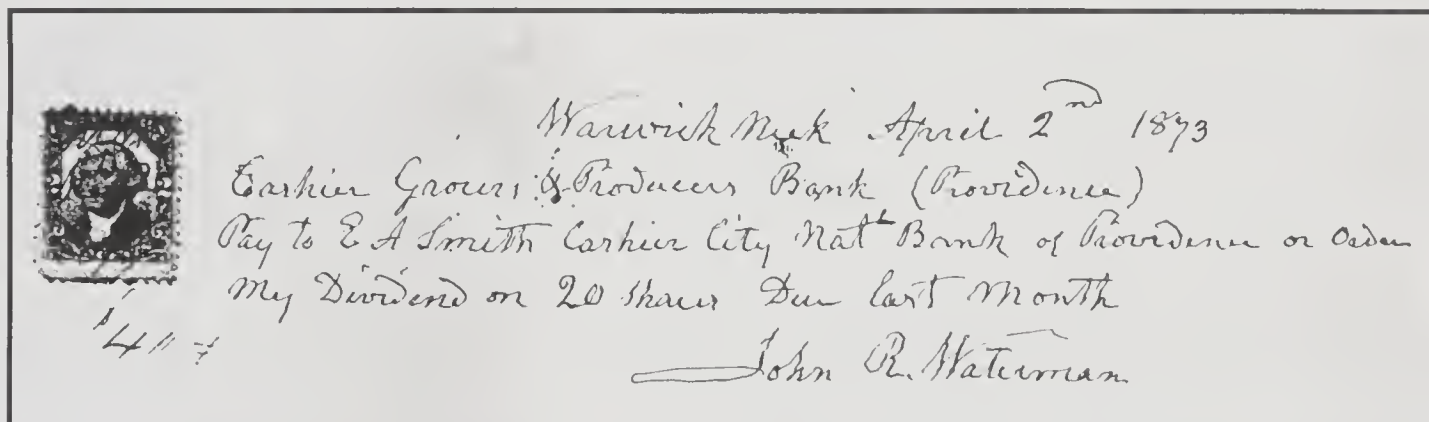 Warwick Neck April 2nd 1873
Cashier Grocers & Producers Bank (Providence)
Pay to E A Smith Cashier City Natl Bank of Providence or Order
My Dividend on 20 Shares Due last Month
$4
John R. Waterman